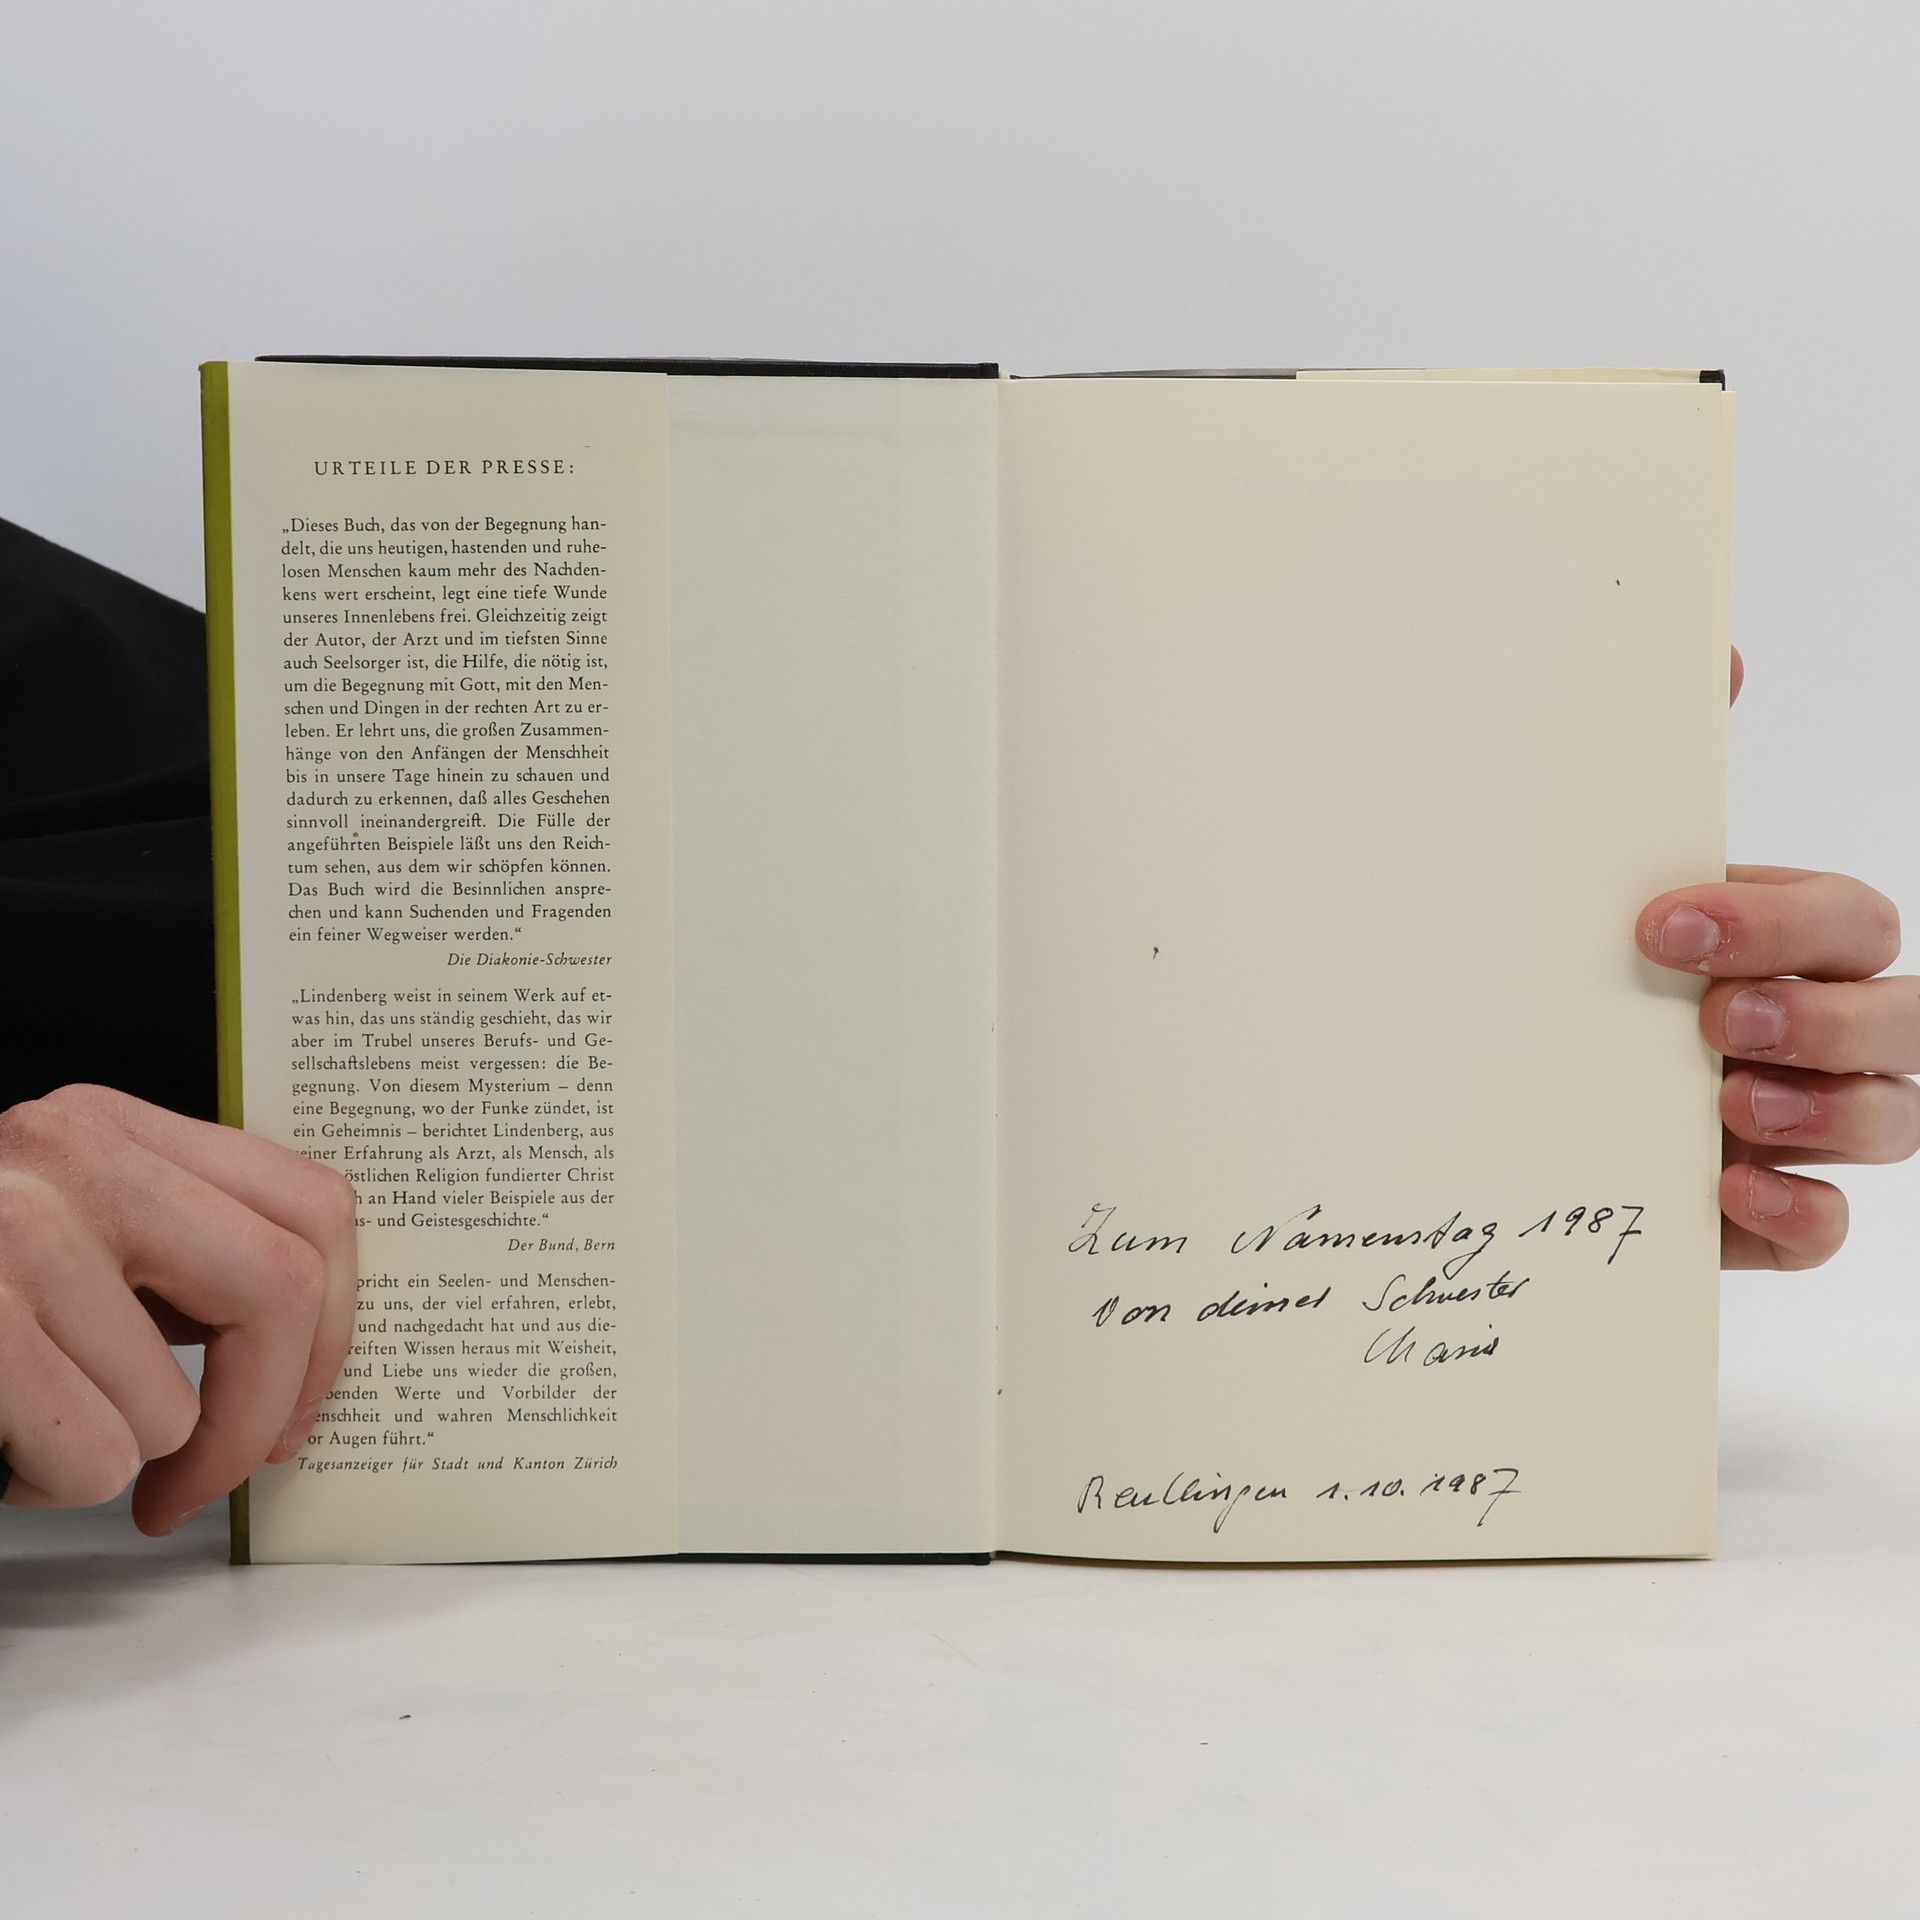 URTEILE DER PRESSE:
„Dieses Buch, das von der Begegnung han-
delt, die uns heutigen, hastenden und ruhe-
losen Menschen kaum mehr des Nachden-
kens wert erscheint, legt eine tiefe Wunde
unseres Innenlebens frei. Gleichzeitig zeigt
der Autor, der Arzt und im tiefsten Sinne
auch Seelsorger ist, die Hilfe, die nötig ist,
um die Begegnung mit Gott, mit den Men-
schen und Dingen in der rechten Art zu er-
leben. Er lehrt uns, die großen Zusammen-
hänge von den Anfängen der Menschheit
bis in unsere Tage hinein zu schauen und
dadurch zu erkennen, daß alles Geschehen
sinnvoll ineinandergreift. Die Fülle der
angeführten Beispiele läßt uns den Reich-
tum sehen, aus dem wir schöpfen können.
Das Buch wird die Besinnlichen anspre-
chen und kann Suchenden und Fragenden
ein feiner Wegweiser werden.“
Die Diakonie-Schwester
„Lindenberg weist in seinem Werk auf et-
was hin, das uns ständig geschieht, das wir
aber im Trubel unseres Berufs- und Ge-
sellschaftslebens meist vergessen: die Be-
gegnung. Von diesem Mysterium – denn
eine Begegnung, wo der Funke zündet, ist
ein Geheimnis – berichtet Lindenberg, aus
einer Erfahrung als Arzt, als Mensch, als
östlichen Religion fundierter Christ
h an Hand vieler Beispiele aus der
s- und Geistesgeschichte.“
Der Bund, Bern
pricht ein Seelen- und Menschen-
zu uns, der viel erfahren, erlebt,
und nachgedacht hat und aus die-
reiften Wissen heraus mit Weisheit,
und Liebe uns wieder die großen,
benden Werte und Vorbilder der
enschheit und wahren Menschlichkeit
or Augen führt.“
Tagesanzeiger für Stadt und Kanton Zürich
Zum Namenstag 1987
von deiner Schwester
Maria
Reutlingen 1.10.1987